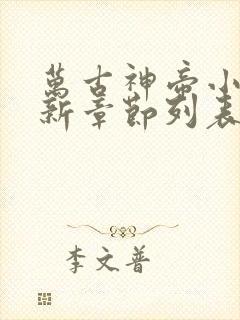 萬古神帝小
新章節列表
李文普